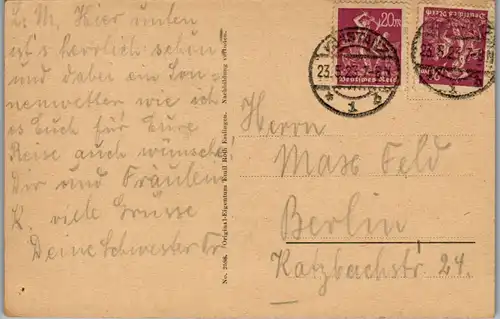 L. M. Hier unten
ist's herrlich schön
und dabei ein Son-
nenwetter wie ich
es Euch für Eure
Reise auch wünsche
Dir und Fräulein
K. viele Grüsse
Deine Schwester
No. 2586. Original-Eigentum Emil Roth Esslingen. Nachbildung verboten.
20M
Deutsches Reich
Deutsches Reich
KONSTANZ
23.5.23
* 1 b
23.5.23
Herrn
Max Feld
Berlin
Katzbachstr 24.